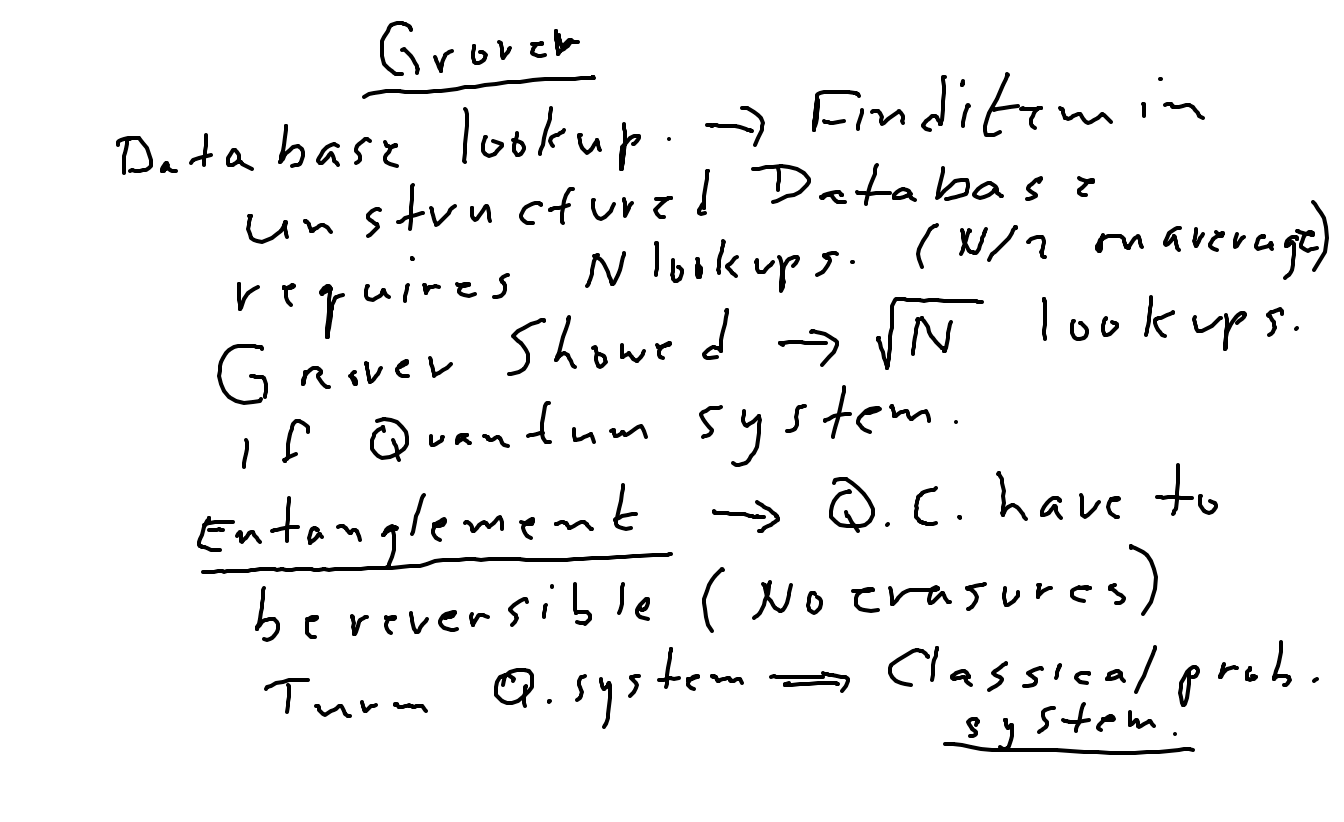 Grover
Database lookup. → Find item in
unstructured Database
requires N lookups. (N/2 on average)
Grover Showed → √N lookups.
if Quantum system.
Entanglement → Q.C. have to
be reversible (No erasures)
Turn Q. system ⇒ Classical prob.
system.